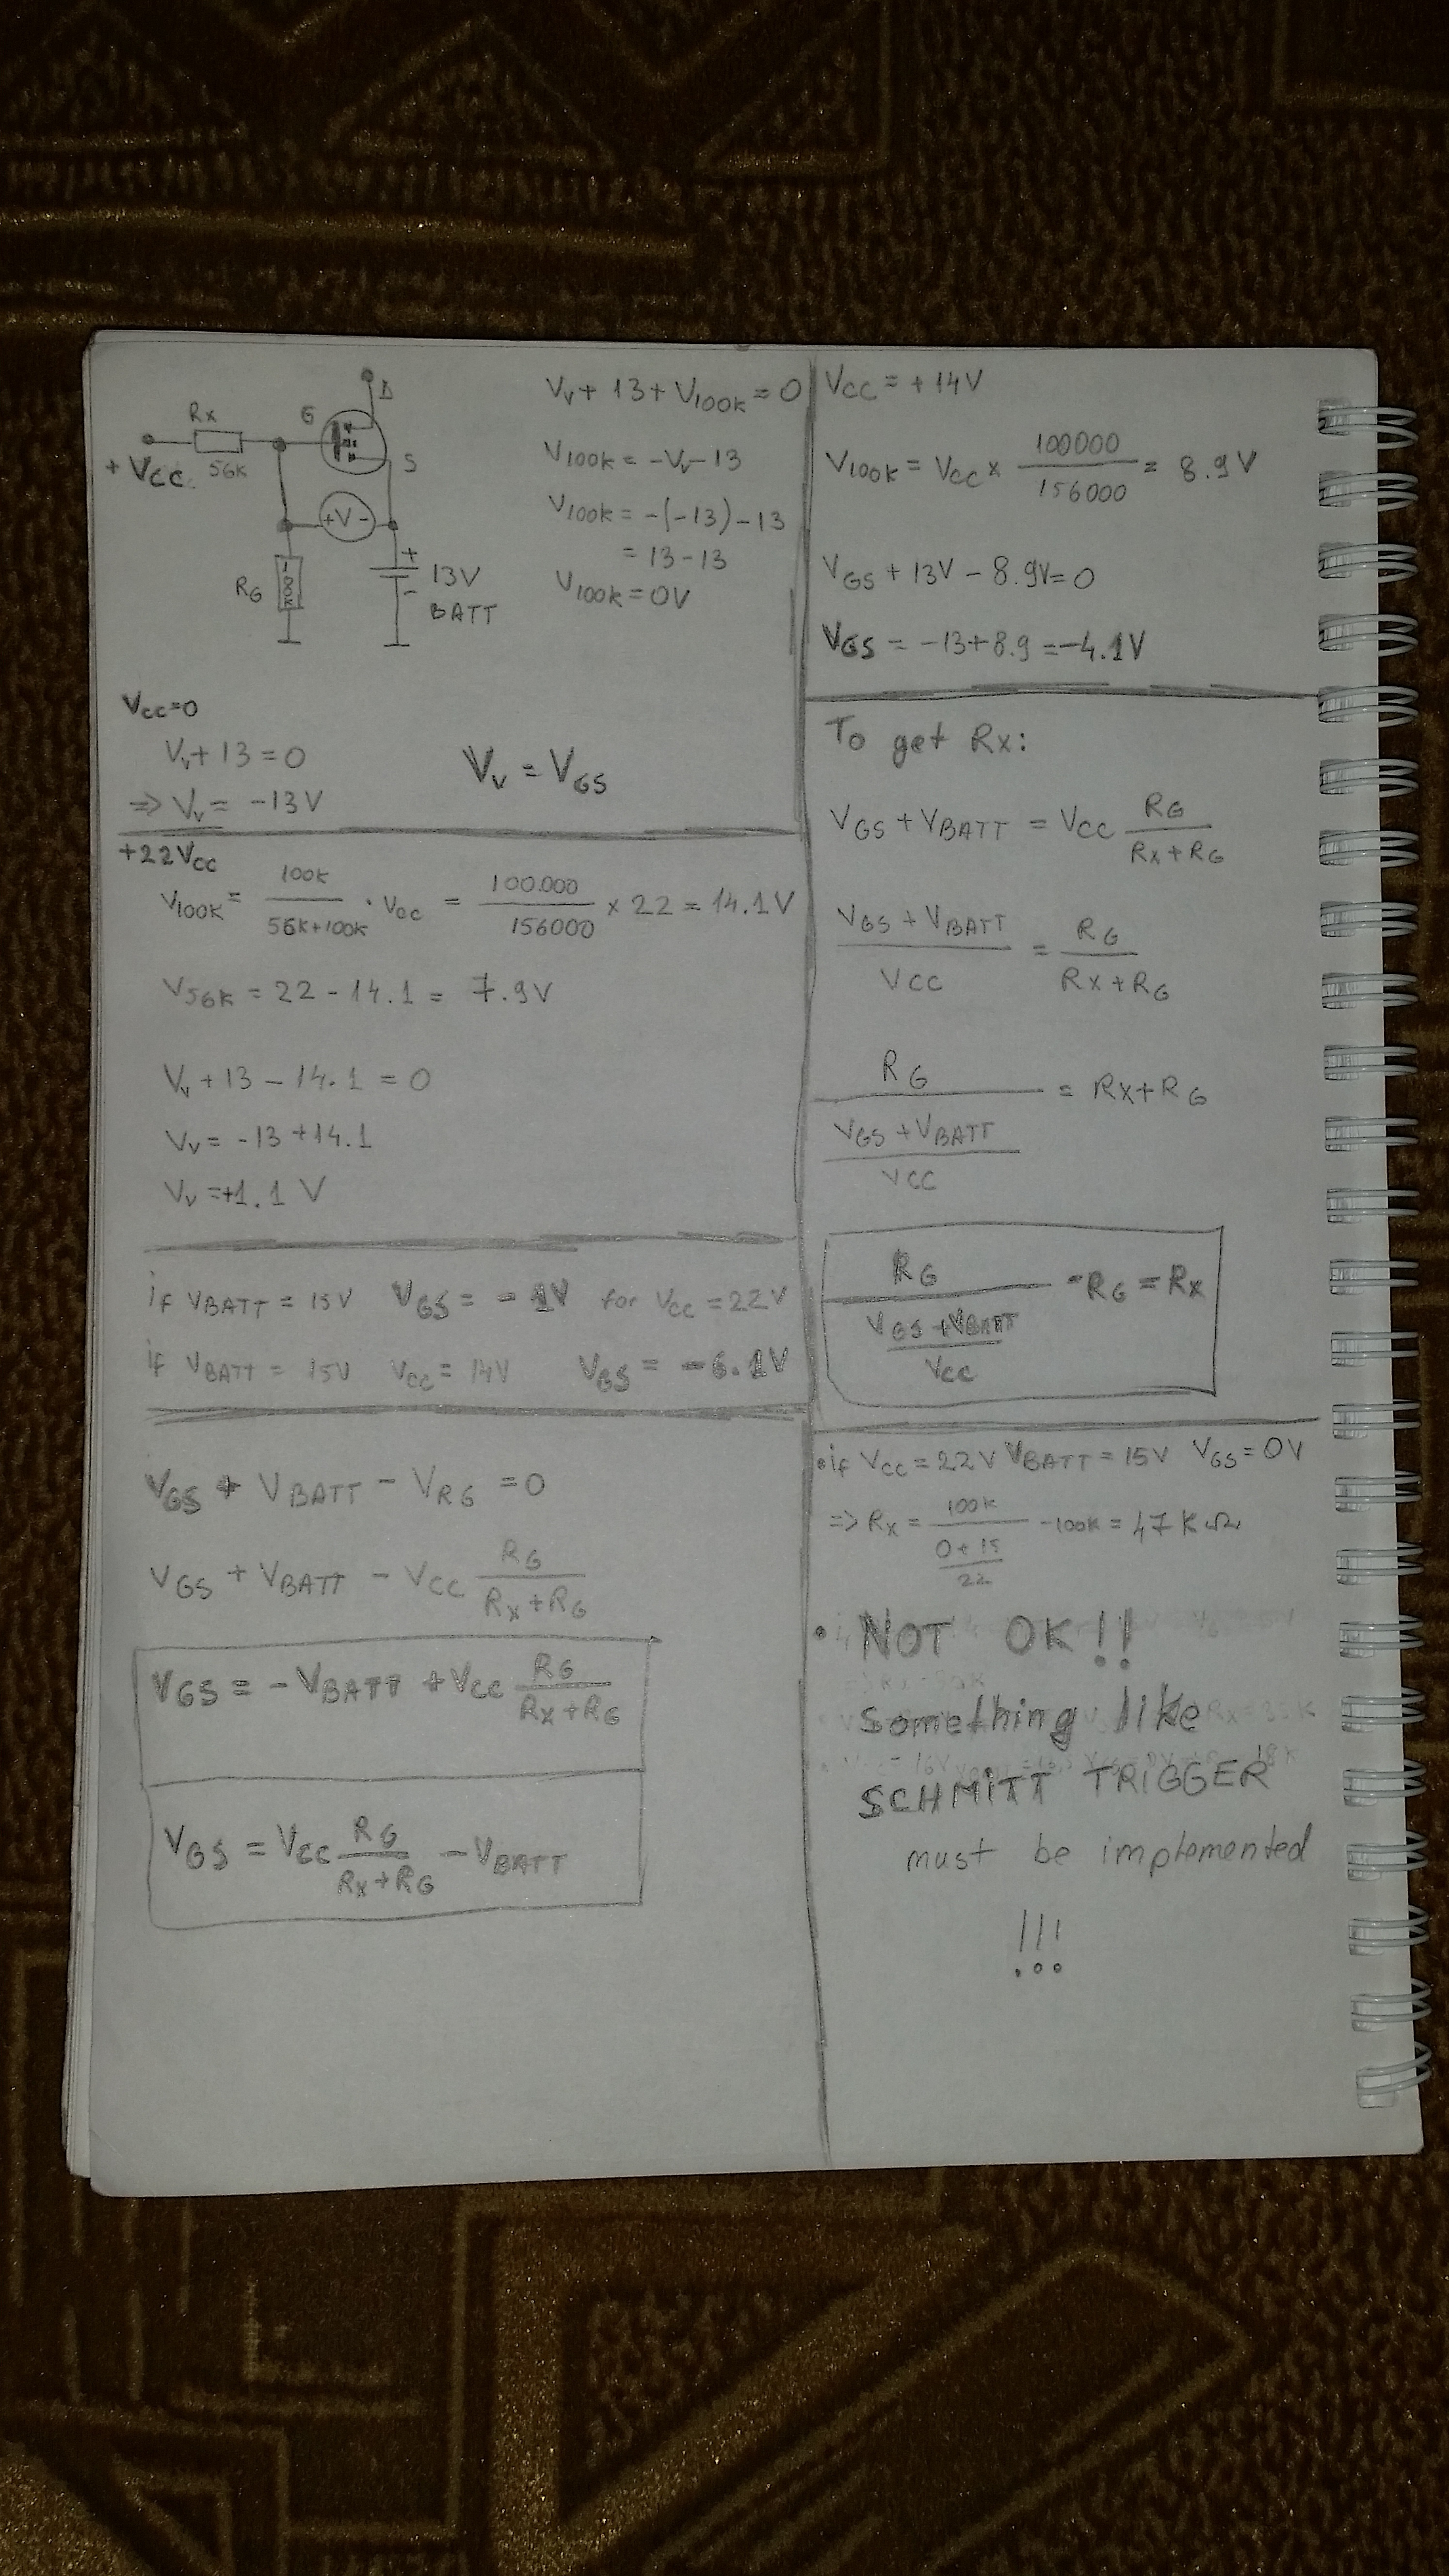 D
Rx
G
S
+Vcc
56K
+V-
RG
100K
+
-
13V
BATT
Vv + 13 + V100K = 0
V100K = -Vv - 13
V100K = -(-13) - 13
= 13 - 13
V100K = 0V
Vcc=0
Vv + 13 = 0
=> Vv = -13V
Vv = VGS
+22Vcc
V100K = 100K / 56K+100K · Vcc = 100.000 / 156000 x 22 = 14.1V
V56K = 22 - 14.1 = 7.9V
Vv + 13 - 14.1 = 0
Vv = -13 + 14.1
Vv = +1.1 V
if VBATT = 15V VGS = -1V for Vcc = 22V
if VBATT = 15V Vcc = 14V VGS = -6.1V
VGS + VBATT - VRG = 0
VGS + VBATT - Vcc RG / Rx+RG
VGS = -VBATT + Vcc RG / Rx+RG
VGS = Vcc RG / Rx+RG - VBATT
Vcc = +14V
V100K = Vcc x 100000 / 156000 = 8.9V
VGS + 13V - 8.9V = 0
VGS = -13+8.9 = -4.1V
To get Rx:
VGS + VBATT = Vcc RG / Rx+RG
VGS + VBATT / Vcc = RG / Rx+RG
RG / VGS + VBATT / Vcc = Rx+RG
RG / VGS + VBATT / Vcc - RG = Rx
• if Vcc = 22V VBATT = 15V VGS = 0V
=> Rx = 100K / 0+15 / 22 - 100K = 47KΩ
• NOT OK!!
Something like
SCHMITT TRIGGER
must be implemented
!!!